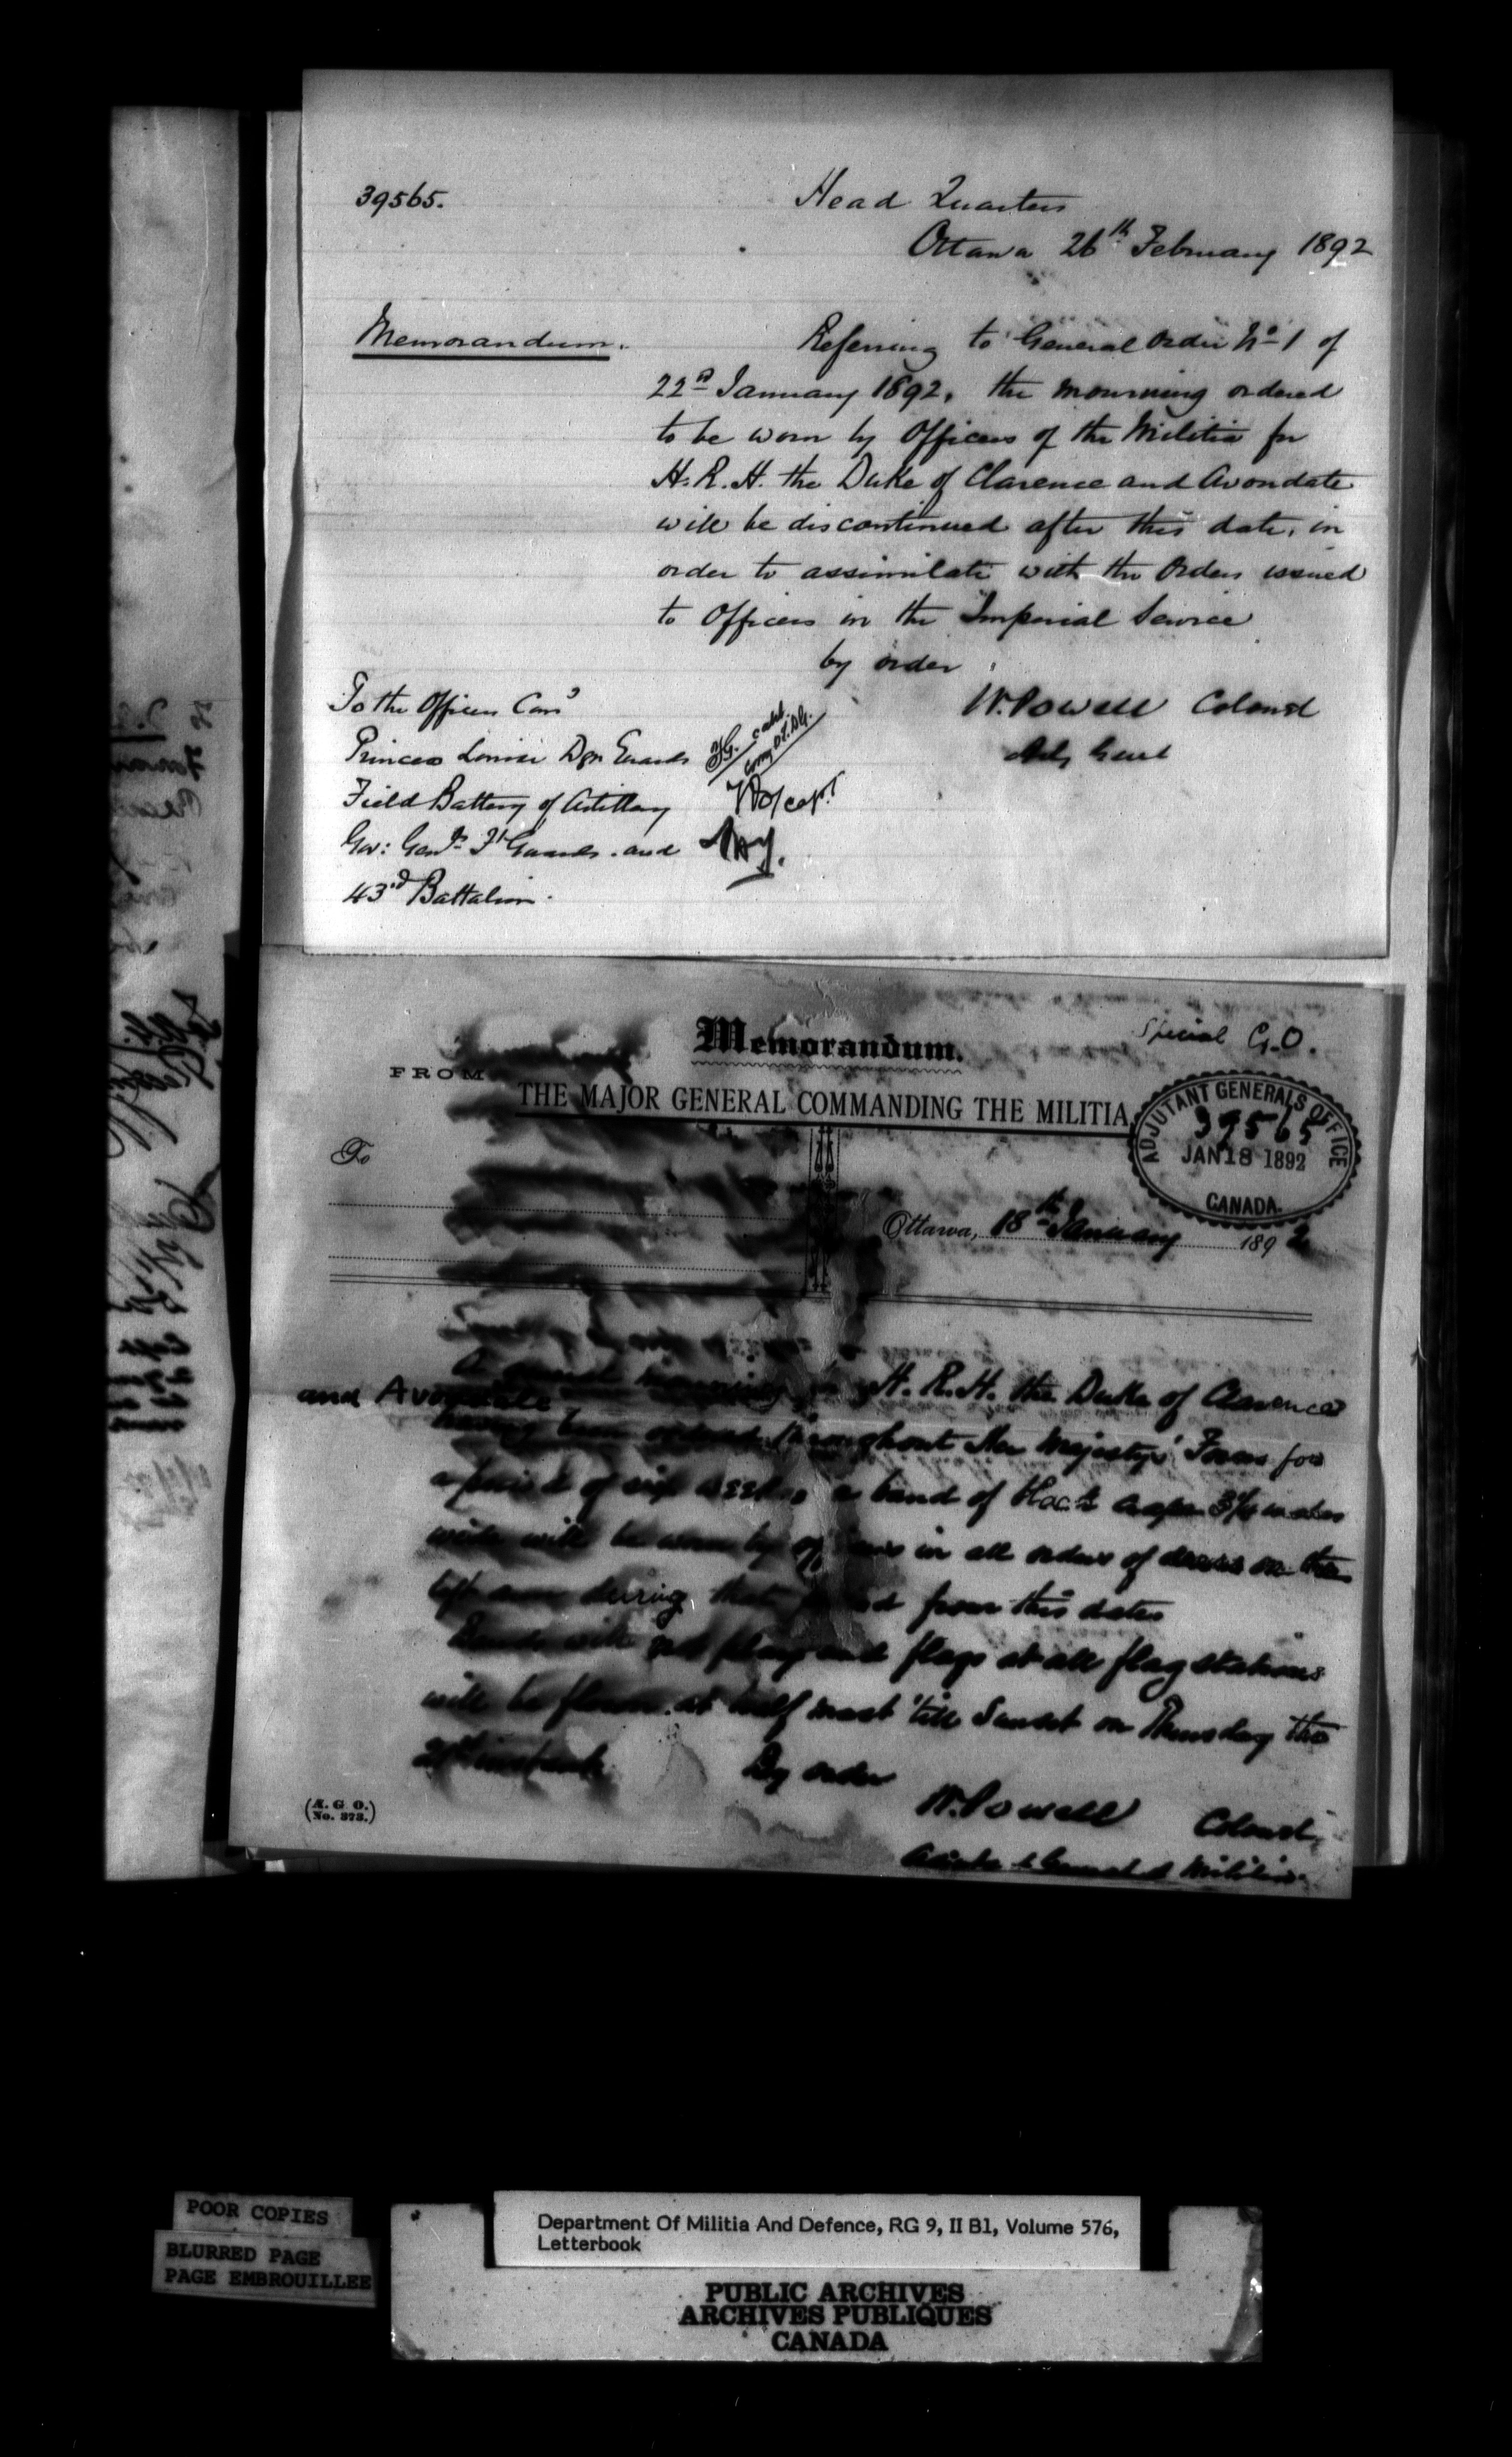 39565.
Head Quarters
Ottawa 26th February 1892
Memorandum.
Referring to General Order No 1 of
22nd January 1892, the mourning ordered
to be worn by Officers of the Militia for
H.R.H. the Duke of Clarence and Avondale
will be discontinued after this date, in
order to assimilate with the Orders issued
to Officers in the Imperial Service
by order
W. Powell Colonel
Adj Genl
To the Officers Comd
Princess Louise Dgn Guards
Field Battery of Artillery
Gov: Genls Ft Guards and
43rd Battalion.
Special G.O.
Memorandum.
FROM
THE MAJOR GENERAL COMMANDING THE MILITIA
ADJUTANT GENERALS OFFICE
39565
JAN 18 1892
CANADA.
To
Ottawa, 18th January 1892
mourning H.R.H. the Duke of Clarence
and Avondale
having been ordered throughout Her Majesty's Forces for
a period of six weeks, a band of black crape 3¼ inches
wide will be worn by officers in all orders of dress on the
left arm during that period from this date
Bands will not play and flags at all flag stations
will be flown at half mast 'till Sunset on Thursday the
instant.
By order
W. Powell Colonel
Adjutant General of Militia
(A. G. O.
No. 373.)
POOR COPIES
BLURRED PAGE
PAGE EMBROUILLEE
Department Of Militia And Defence, RG 9, II B1, Volume 576,
Letterbook
PUBLIC ARCHIVES
ARCHIVES PUBLIQUES
CANADA